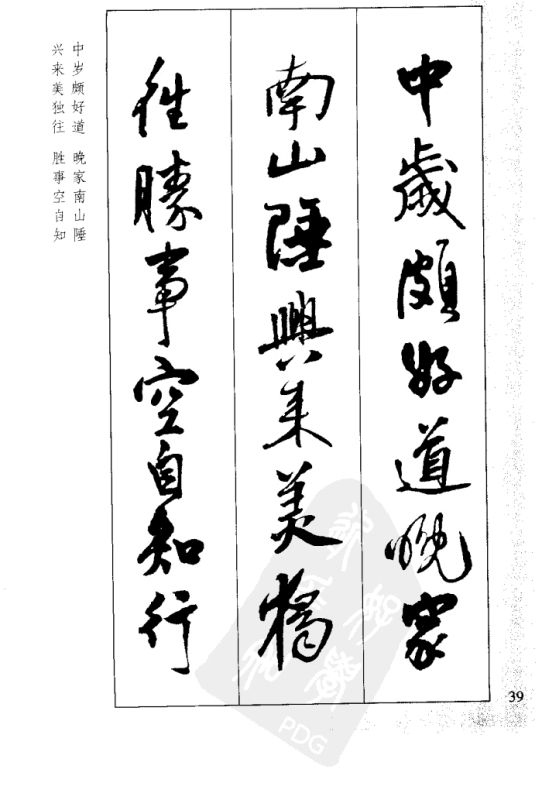 中歲頗好道晚家
南山陲興来美獨
往勝事空自知行
中岁颇好道 晚家南山陲
兴来美独往 胜事空自知
39
PDG